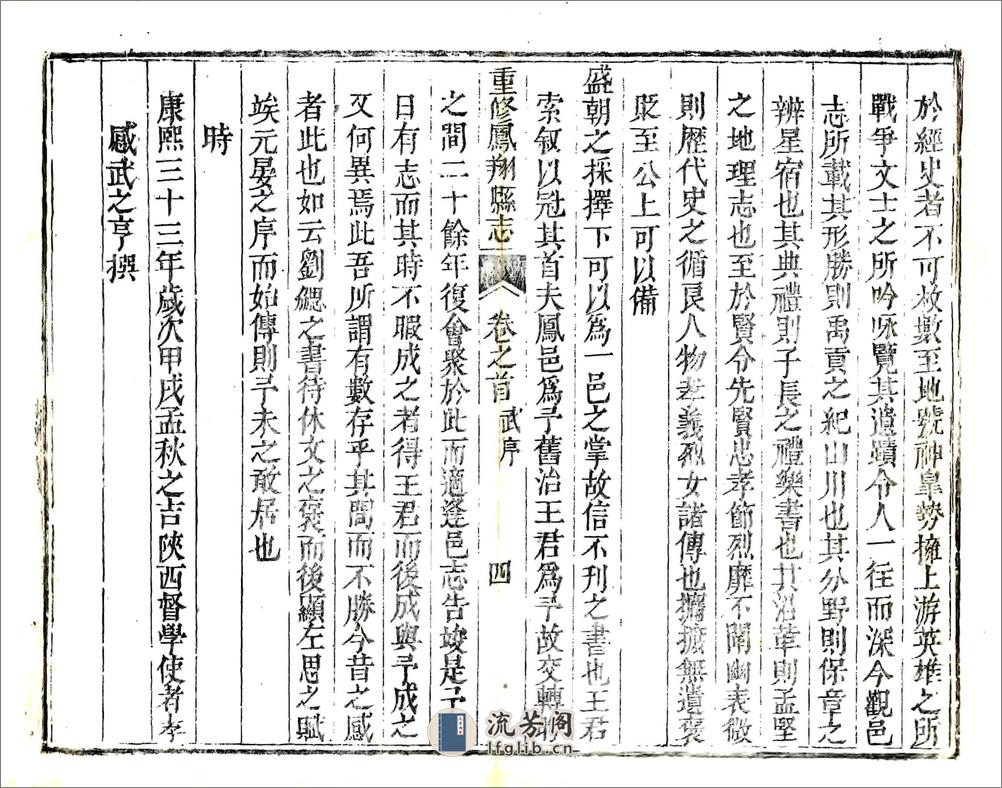 於經史者不可枚數至地號神臯勢擁上游英雄之所
戰爭文士之所吟咏覽其遺蹟令人一往而深今觀邑
志所載其形勝則禹貢之紀山川也其分野則保章之
辨星宿也其典禮則子長之禮樂書也其沿革則孟堅
之地理志也至於賢令先賢忠孝節烈靡不闡幽表微
則歷代史之循良人物孝義烈女諸傳也攟摭無遺褒
貶至公上可以備
盛朝之採擇下可以爲一邑之掌故信不刋之書也王君
索叙以冠其首夫鳳邑爲予舊治王君爲予故交轉盻
重修鳳翔縣志 卷之首 武序 四
之間二十餘年復會聚於此而適逢邑志告竣是予
日有志而其時不暇成之者得王君而後成與予成之
又何異焉此吾所謂有數存乎其間而不勝今昔之感
者此也如云劉勰之書待休文之褒而後顯左思之賦
竢元晏之序而始傳則予未之敢居也
時
康熙三十三年歲次甲戌孟秋之吉陝西督學使者孝
感武之亨撰
流芳阁
lfglib.cn